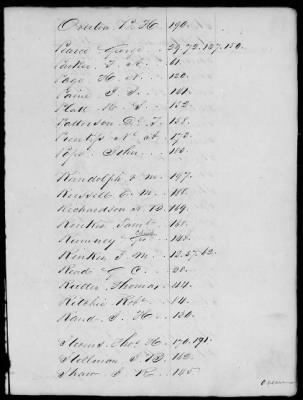 Overton Wm H. 190.
Pearce George 29.72.127.150.
Parker F. A. 61.
Page H. N. 120.
Paine J. S. 141.
Platt 152.
Patterson D. T. 158.
Prentiss 172.
Pope John 180.
Randolph 197.
Russell E. M. 188.
Richardson 169.
Renkin Saml 161.
Rumney Geo 148.
Renken J. M. 13.57.62.
Read G C. 20.
Rutter Thomas 44.
Ritchie Robt 84.
Rand J. H. 130.
Stevens Thos H. 176.191.
Stellman 182.
Shaw 185